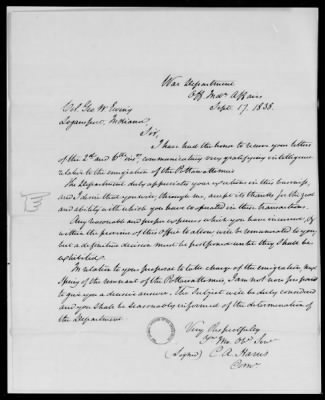 War Department
Off. Indn. Affairs
Sept. 17. 1838.
Col. Geo W Ewing
Logansport, Indiana
Sir,
I have had the honor to receive your letters
of the 2nd and 6th inst, communicating very gratifying intelligence
relative to the emigration of the Pottawatomies
The Department duly appreciates your exertions in this business,
and I submit that you will, through me, accept its thanks for the zeal
and ability with which you have cooperated in these transactions.
Any reasonable and proper expenses which you have incurred,
within the province of this Office to allow, will be remunerated to you,
but a definitive decision must be postponed until they shall be
exhibited.
In relation to your proposal to take charge of the emigration next
Spring of the remnant of the Pottawatomies, I am not now prepared
to give you a decisive answer. The subject will be duly considered
and you shall be seasonably informed of the determination of
the Department
Very Respectfully
Yr. Mo. Obt. Servt
(Signed) C. A. Harris
Comr.